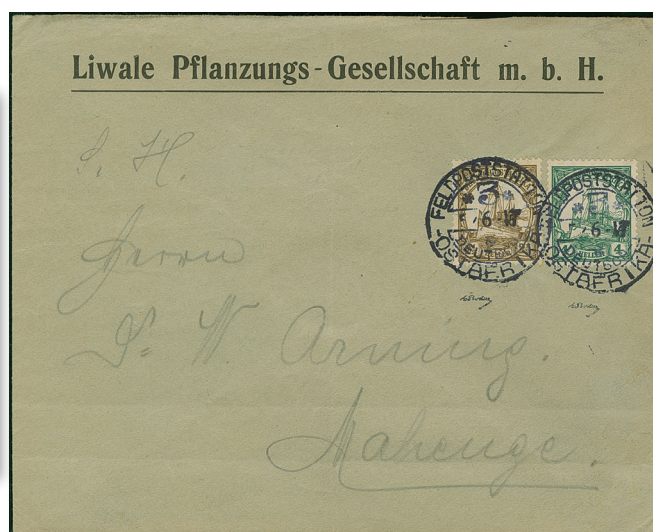 Liwale Pflanzungs-Gesellschaft m. b. H.
S. H.
Herrn
Dr. W. Arning.
Mahenge.
FELDPOSTSTATION
*3*
6. 17
DEUTSCH-
OSTAFRIKA
FELDPOSTSTATION
*3*
6. 17
DEUTSCH-
OSTAFRIKA
4
HELLER